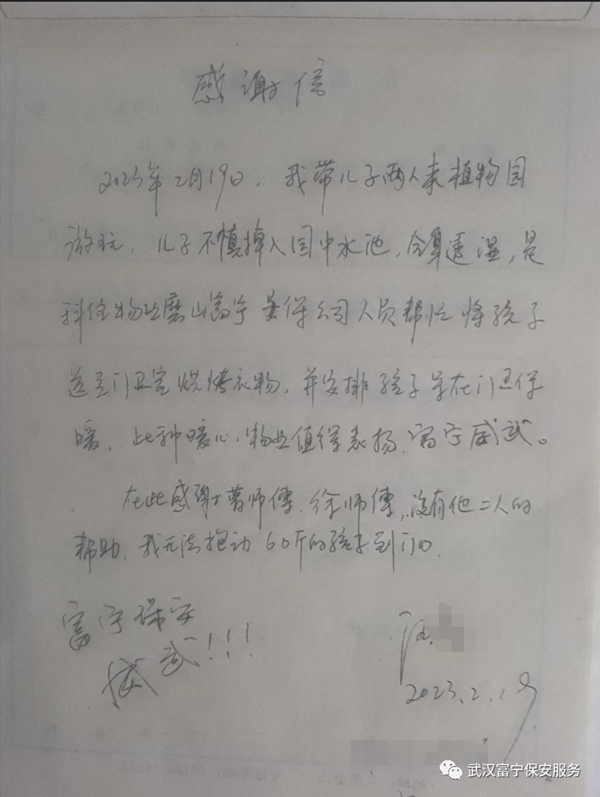 感谢信
2023年2月19日，我带儿子两人来植物园
游玩，儿子不慎掉入园中水池，全身透湿，是
科住物业磨山富宁安保公司人员帮忙将孩子
送至门卫室烘烤衣物，并安排孩子呆在门卫保
暖，此种暖心，物业值得表扬，富宁威武。
在此感谢曹师傅、徐师傅，没有他二人的
帮助，我无法抱动60斤的孩子到门口
富宁保安
威武!!!
2023.2.19
武汉富宁保安服务